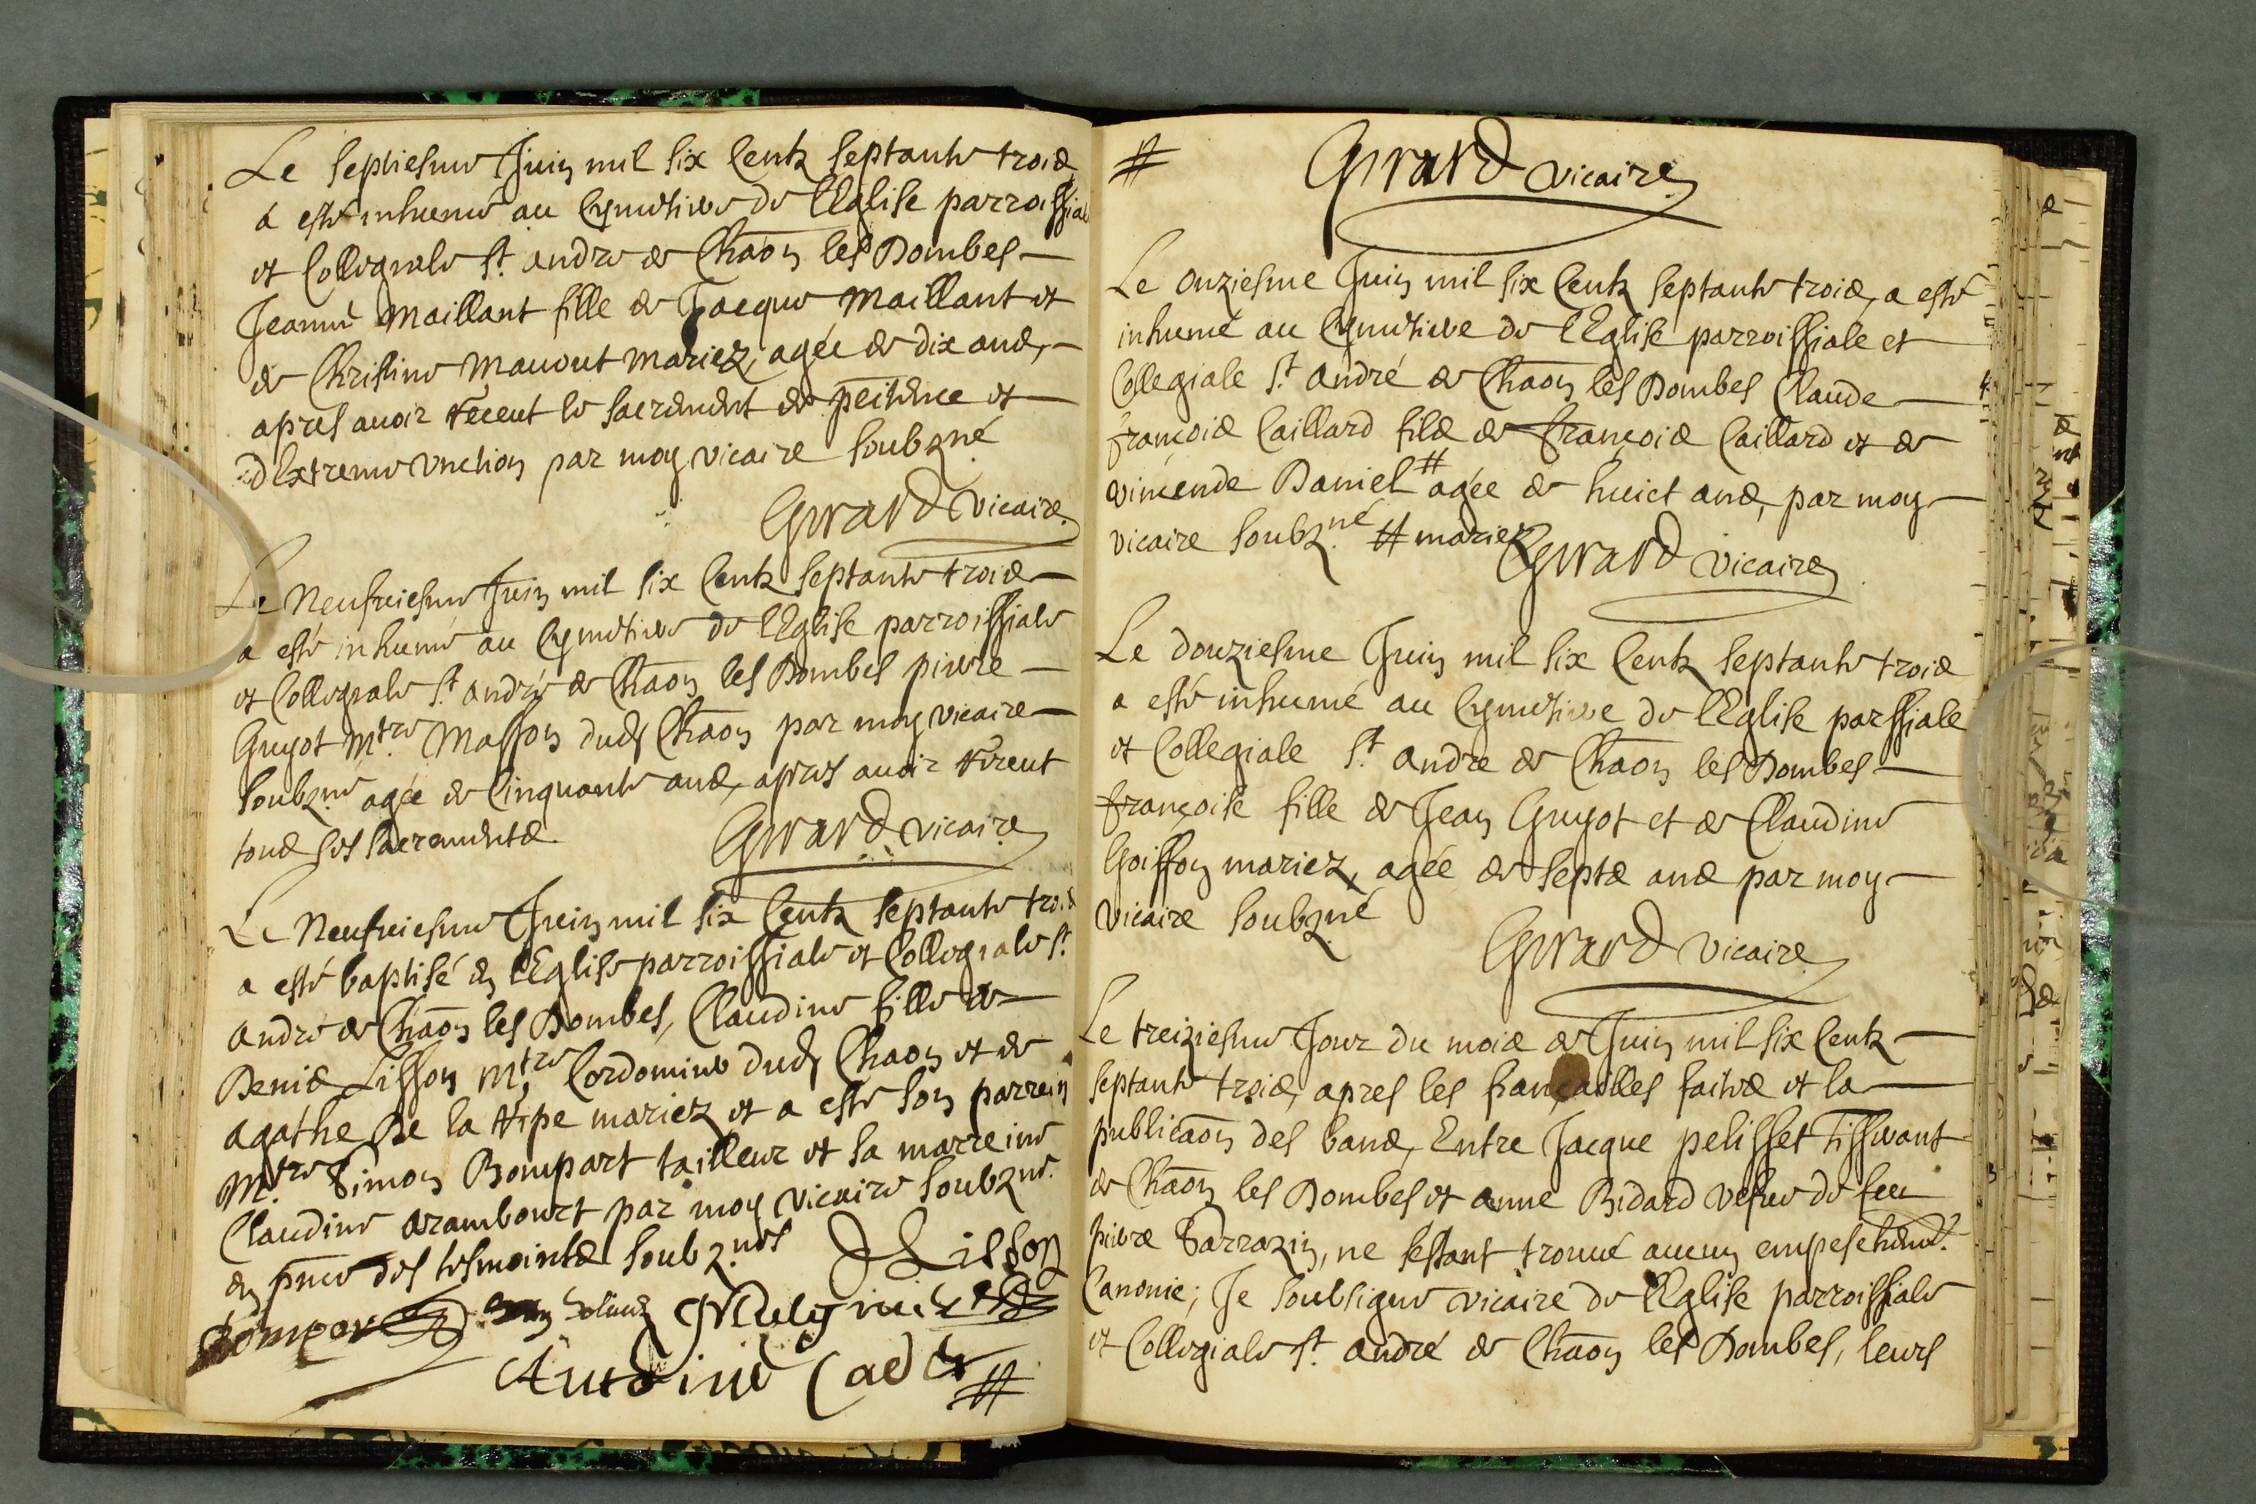 Le septiesme Juin mil six Centz septante trois
a esté inhumé au Cymetiere de l'Eglise parroissiale
et Collegiale St. andre de Chaōn les Dombes
Jeanne Maillant fille de Jacque Maillant et
de Christine Mauout mariez, agée de dix ans,
apres auoir receut le sacrement de peitence et
d'Extreme Vnction par moy vicaire soubzné
Girard vicaire
Le Neufuiesme Juin mil six Centz septante trois
a esté inhumé au Cymetiere de l'Eglise parroissiale
et Collegiale St. andré de Chaōn les Dombes pierre
Guyot Mtre Masson dud Chaōn par moy vicaire
soubzné agée de Cinquante ans, apres auoir receut
tous ses sacrements
Girard vicaire
Le Neufuiesme Juin mil six Centz septante trois
a esté baptisé en l'Eglise parroissiale et Collegiale St.
andre de Chaōn les Dombes, Claudine fille de
Denis Lisson Mtre Cordonnier dud Chaon et de
agathe De la Ripe mariez et a esté son parrein
Mtre Simon Bompart tailleur et sa marreine
Claudine arambourt par moy vicaire soubzné
en pnce des tesmointz soubznés
D Lisson
Bompar
Antoine Cadet
#
# Girard vicaire
Le onziesme Juin mil six Centz septante trois, a esté
inhumé au Cymetiere de l'Eglise parroissiale et
Collegiale St. andré de Chaōn les Dombes Claude
françois Caillard fils de françois Caillard et de
vincende Daniel # agée de huict ans, par moy
vicaire soubzné # mariez
Girard vicaire
Le douziesme Juin mil six Centz septante trois
a esté inhumé au Cymetiere de l'Eglise parssiale
et Collegiale St. andre de Chaōn les Dombes
françoise fille de Jean Guyot et de Claudine
Goiffon mariez, agée de septs ans par moy
vicaire soubzné
Girard vicaire
Le treiziesme Jour du mois de Juin mil six Centz
septante trois, apres les fiançailles faites et la
publicaōn des bans, Entre Jacque pelisset Tisserant
de Chaōn les Dombes et anne Bidard vefue de feu
pierre Sarrazin, ne s'estant trouué aucun empeschemt.
Canonic; Je soubsigne vicaire de l'Eglise parroissiale
et Collegiale St. andré de Chaōn les Dombes, leurs